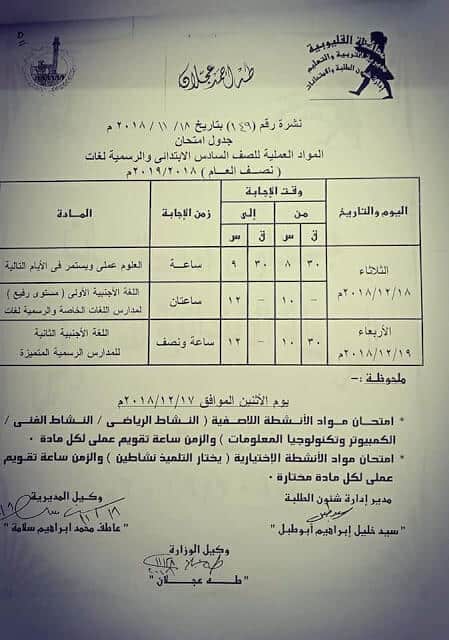 محافظة القليوبية
مديرية التربية والتعليم
إدارة شئون الطلبة والامتحانات
طه احمد عجلان
نشرة رقم (١٤٩) بتاريخ ١٨ / ١١ / ٢٠١٨ م
جدول امتحان
المواد العملية للصف السادس الابتدائى والرسمية لغات
( نصف العام ) ٢٠١٩/٢٠١٨م
اليوم والتاريخ وقت الإجابة زمن الإجابة المــادة
من إلى
ق س ق س
الثلاثاء ٢٠١٨/١٢/١٨م ٣٠ ٨ ٣٠ ٩ ساعــة العلوم عملى ويستمر فى الأيام التالية
– ١٠ – ١٢ ساعتان اللغة الأجنبية الأولى ( مستوى رفيع )
لمدارس اللغات الخاصة والرسمية لغات
الأربعاء ٢٠١٨/١٢/١٩م ٣٠ ١٠ – ١٢ ساعة ونصف اللغة الأجنبية الثانية
للمدارس الرسمية المتميزة
ملحوظة :–
يوم الأثنين الموافق ٢٠١٨/١٢/١٧م
* امتحان مـواد الأنـشطة اللاصفية ( النشاط الرياضى / النشاط الفنى /
الكمبيوتر وتكنولوجيا المعلومات ) والزمن ساعة تقويم عملى لكل مادة .
* امتحان مواد الأنشطة الإختيارية ( يختار التلميذ نشاطين ) والزمن ساعة تقويم
عملى لكل مادة مختارة .
مدير إدارة شئون الطلبة وكيل المديرية
سيد خليل إبراهيم أبوطبل " عاطف محمد ابراهيم سلامة "
وكيل الوزارة
" طـه عجـلان "